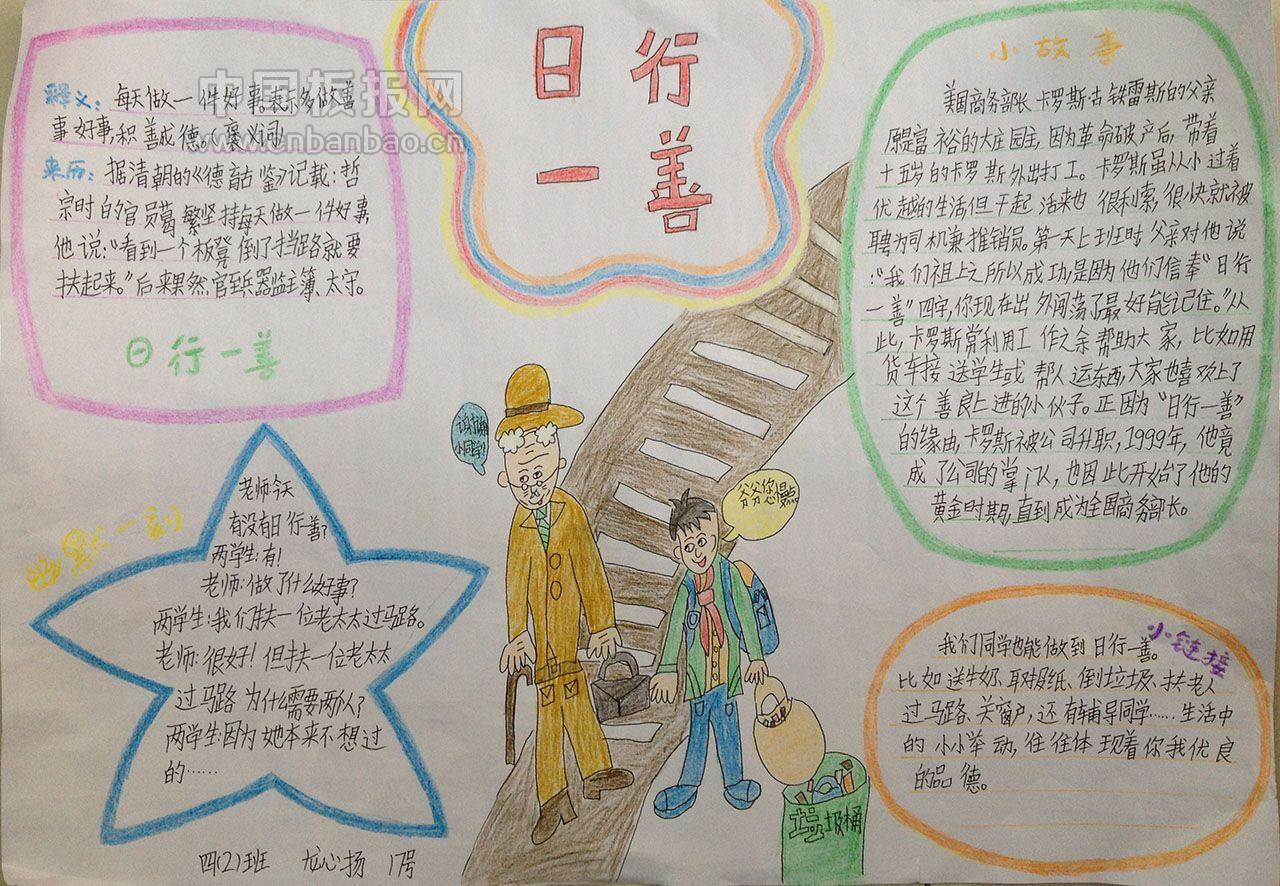 日行
一善
中国板报网
www.cnbanbao.cn
释义：每天做一件好事。表示多做善
事好事，积善成德。（褒义词）
来历：据清朝的《德育古鉴》记载：哲
宗时的官员葛繁坚持每天做一件好事，
他说：“看到一个板凳倒了挡路就要
扶起来。”后来果然官至兵器监主簿、太守。
日行一善
幽默一刻
老师：今天
有没有日行一善？
两学生：有！
老师：做了什么好事？
两学生：我们扶一位老太太过马路。
老师：很好！但扶一位老太太
过马路为什么需要两人？
两学生：因为她本来不想过
的……
四(2)班 龙心扬 17号
谢谢
小同学！
爷爷您慢点
垃圾桶
小故事
美国商务部长卡罗斯·古铁雷斯的父亲
原是富裕的大庄园主，因为革命破产后，带着
十五岁的卡罗斯外出打工。卡罗斯虽从小过着
优越的生活但干起活来也很利索，很快就被
聘为司机兼推销员。第一天上班时父亲对他说
：“我们祖上之所以成功是因为他们信奉“日行
一善”四字，你现在出外闯荡了最好能记住。”从
此，卡罗斯常利用工作之余帮助大家，比如用
货车接送学生或帮人运东西，大家也喜欢上了
这个善良上进的小伙子。正因为“日行一善”
的缘由，卡罗斯被公司升职，1999年，他竟
成了公司的掌门人，也因此开始了他的
黄金时期，直到成为全国商务部长。
小链接
我们同学也能做到日行一善。
比如送牛奶、取报纸、倒垃圾、扶老人
过马路、关窗户，还有辅导同学……生活中
的小小举动，往往体现着你我优良
的品德。